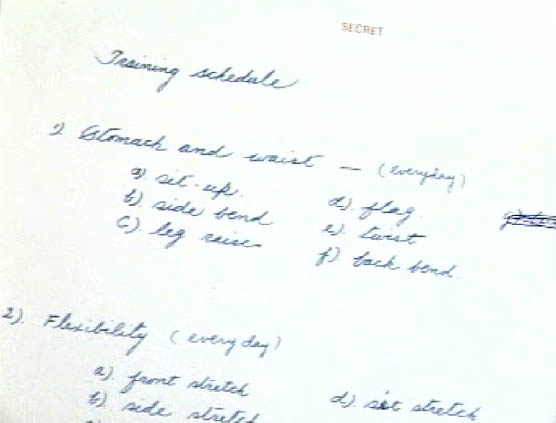 SECRET
Training schedule
1) Stomach and waist — (everyday)
a). sit-up. d). flag.
b). side bend e). twist
c). leg raises f). back bend.
2). Flexibility (everyday)
a). front stretch d). sit stretch
b). side stretch